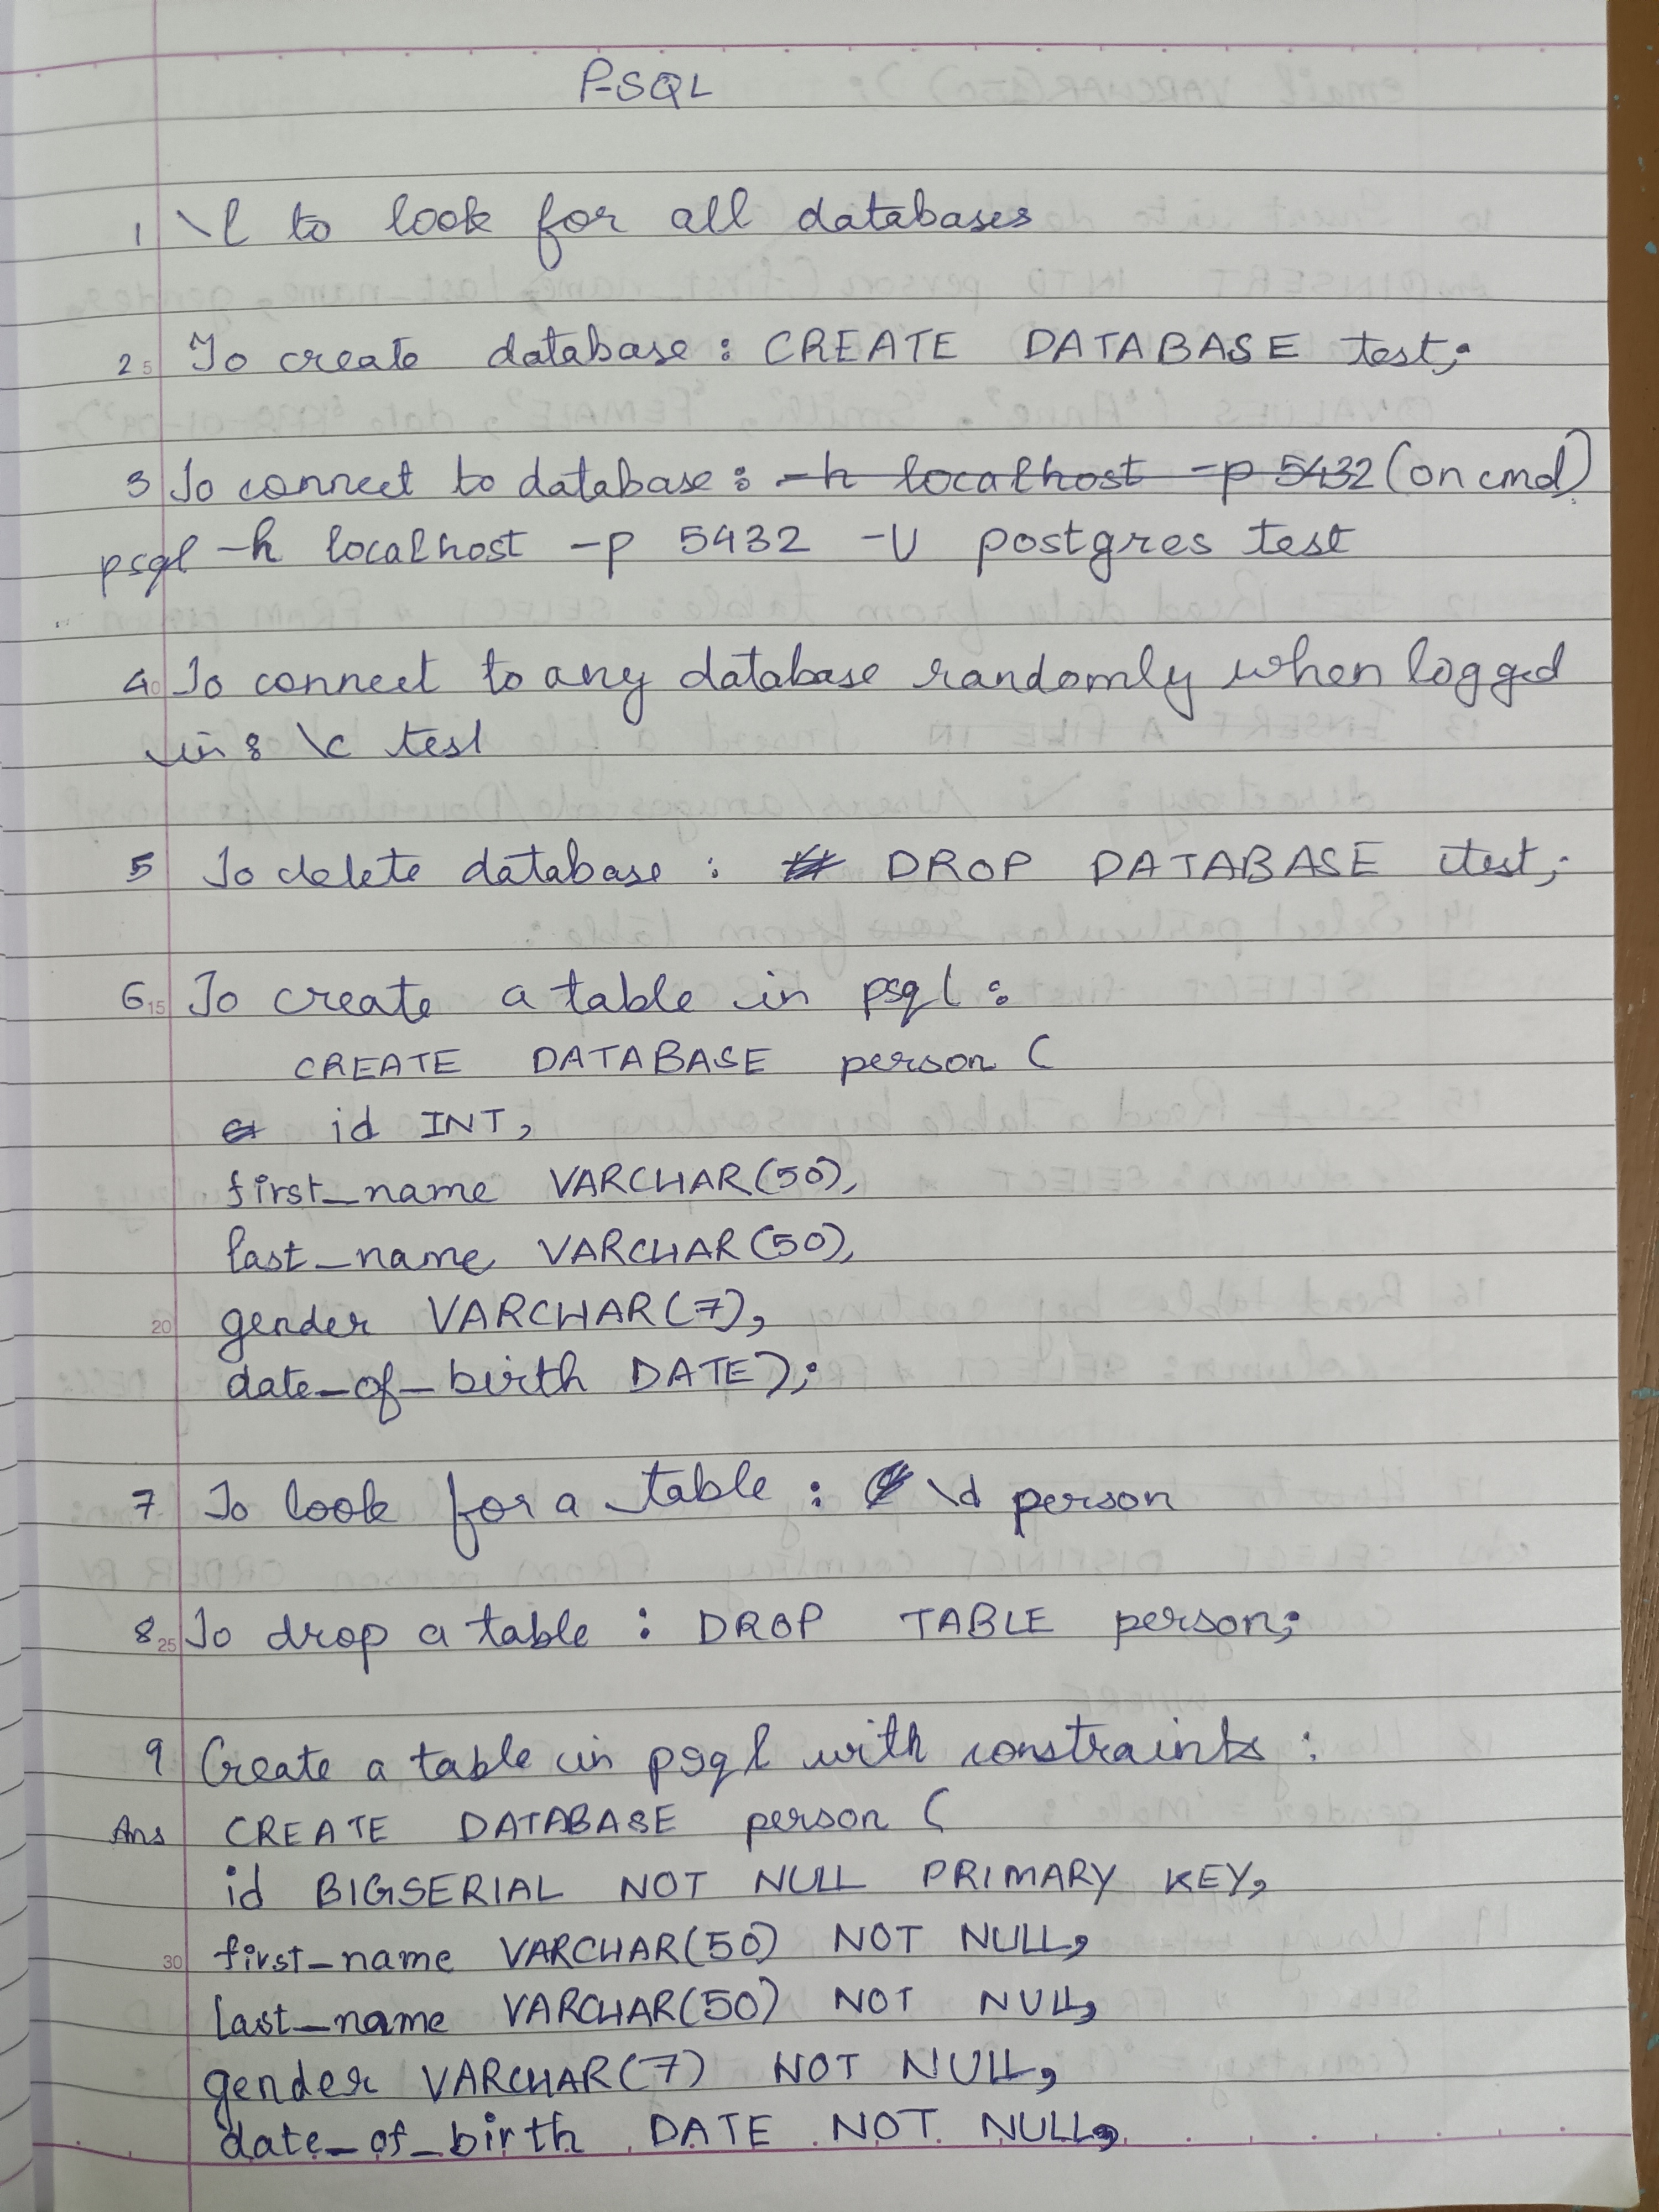 P-SQL
1 \l to look for all databases
2 To create database : CREATE DATABASE test;
3 To connect to database : -h localhost -p 5432 (on cmd)
psql -h localhost -p 5432 -U postgres test
4 To connect to any database randomly when logged
in : \c test
5 To delete database : DROP DATABASE test;
6 To create a table in psql :
CREATE DATABASE person (
id INT,
first_name VARCHAR(50),
last_name VARCHAR(50),
gender VARCHAR(7),
date_of_birth DATE);
7 To look for a table : \d person
8 To drop a table : DROP TABLE person;
9 Create a table in psql with constraints :
Ans CREATE DATABASE person (
id BIGSERIAL NOT NULL PRIMARY KEY,
first_name VARCHAR(50) NOT NULL,
last_name VARCHAR(50) NOT NULL,
gender VARCHAR(7) NOT NULL,
date_of_birth DATE NOT NULL,